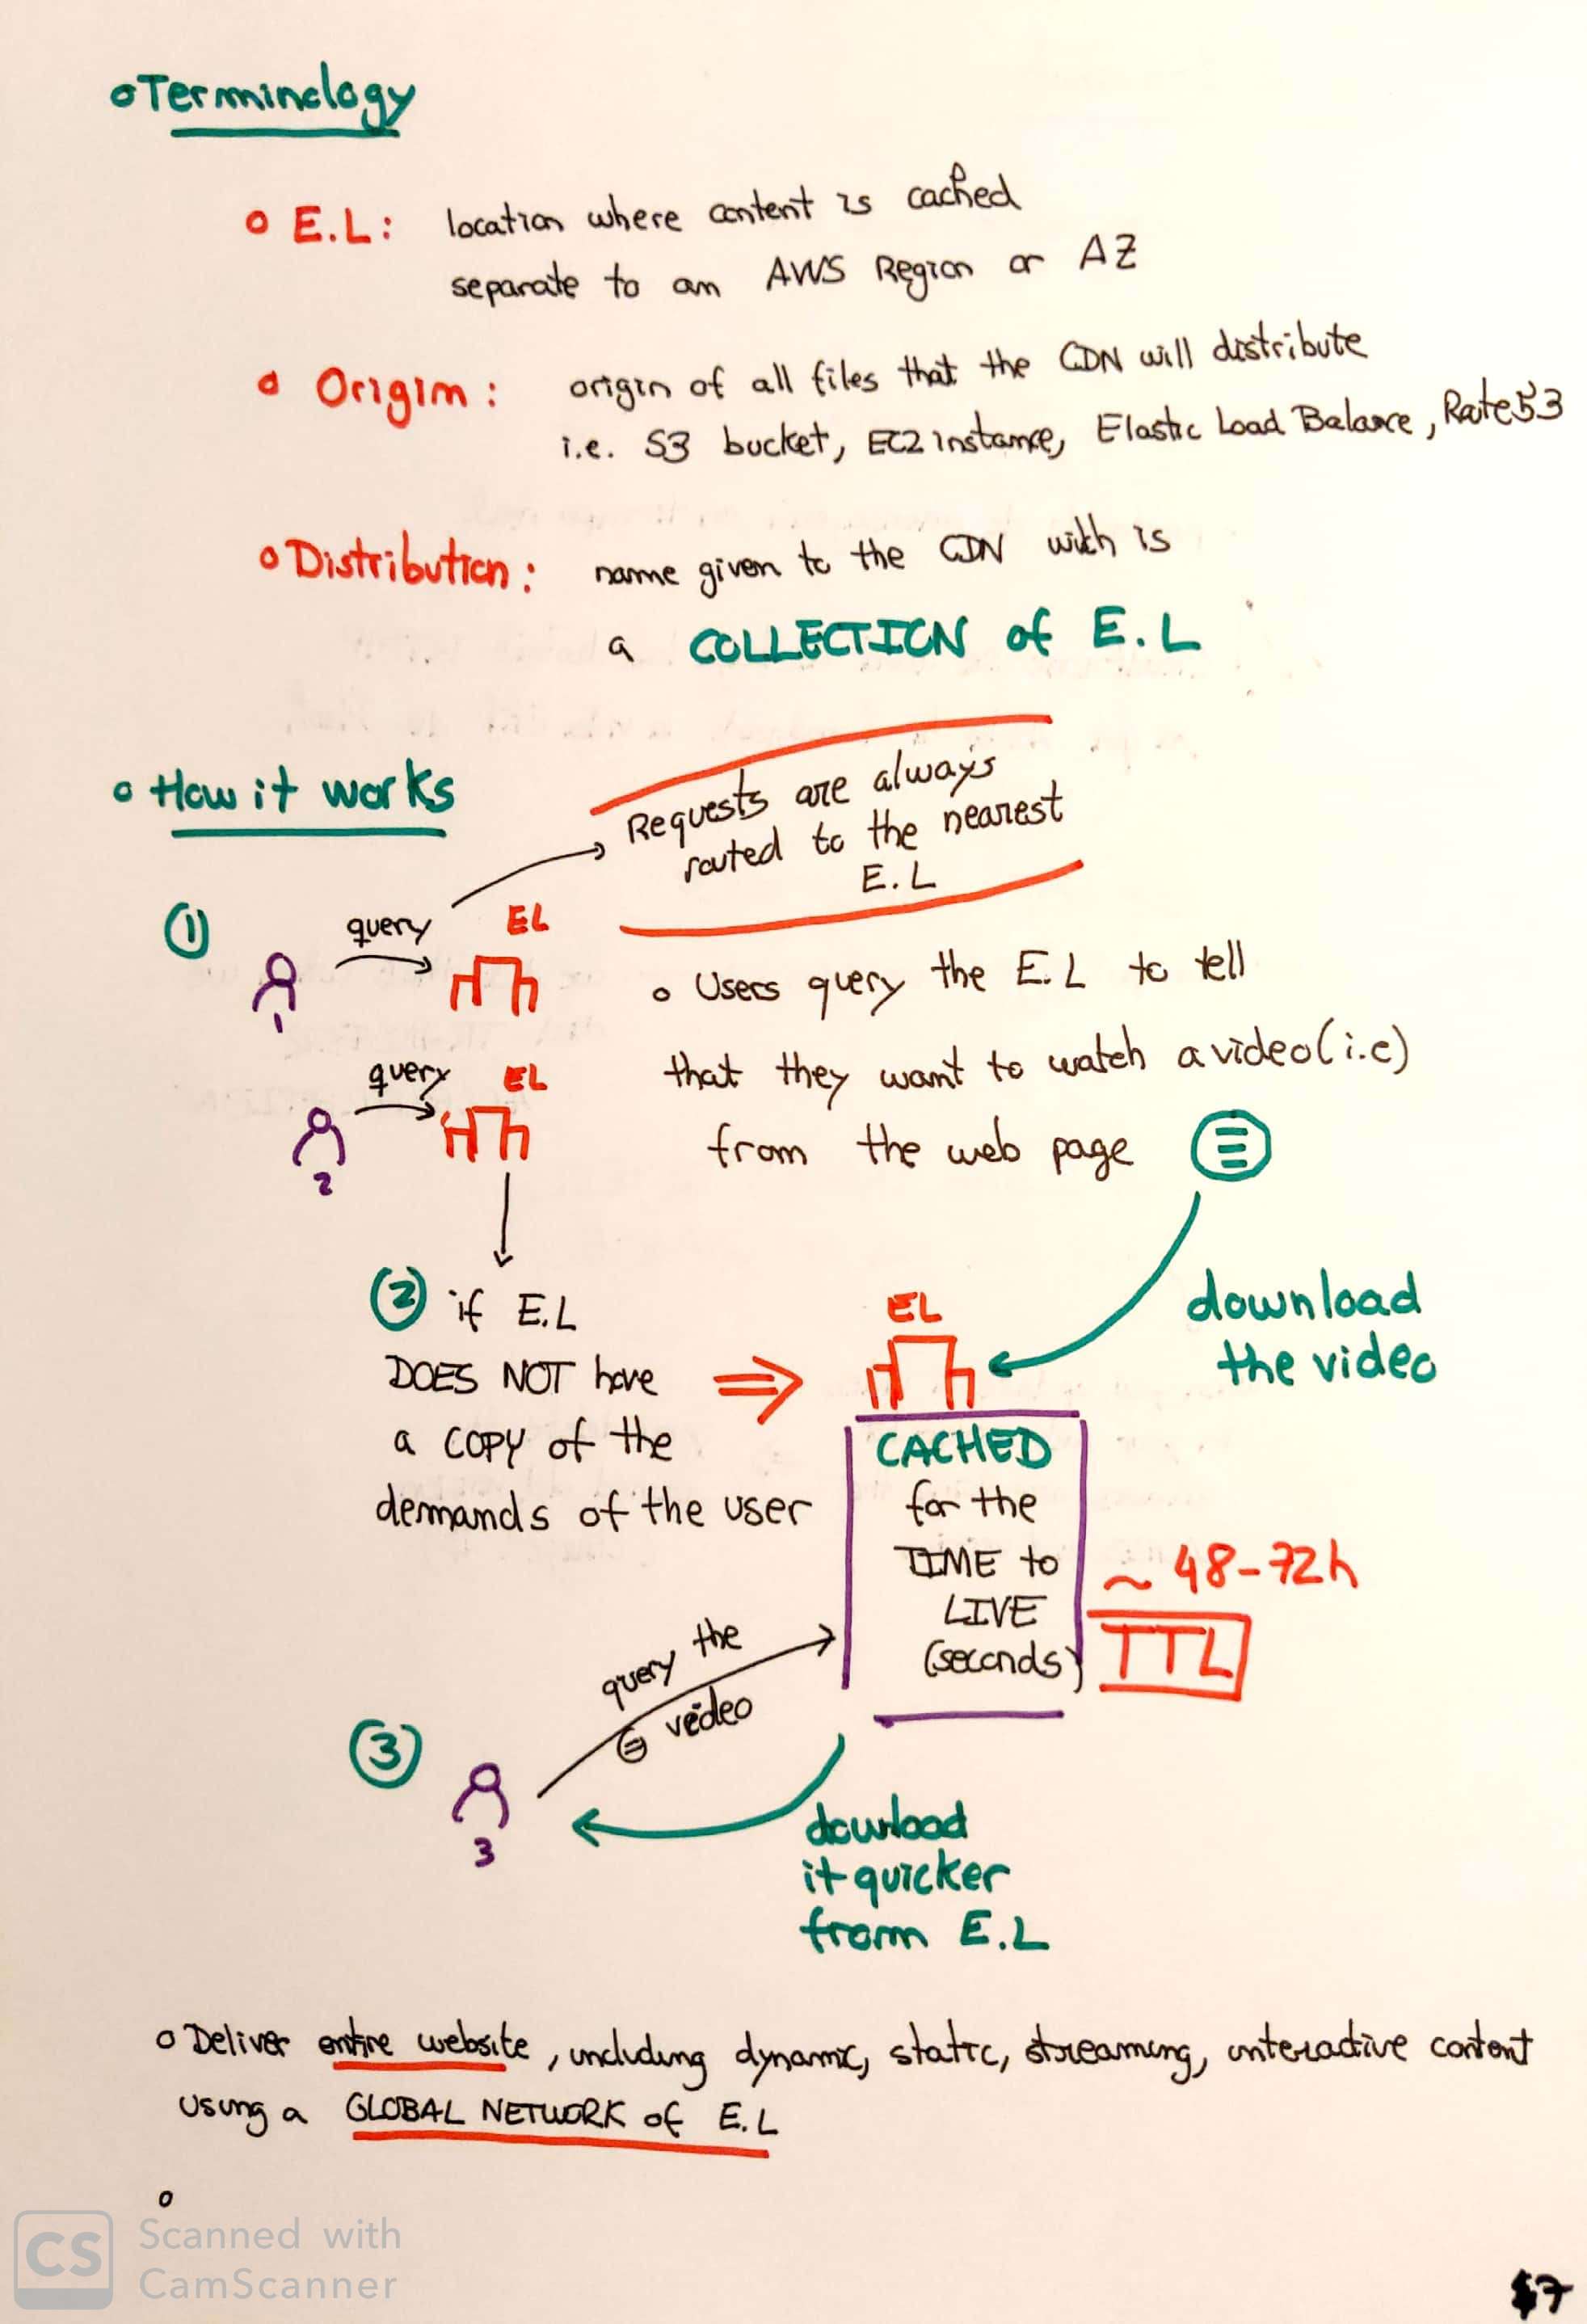 Terminology
E.L: location where content is cached
separate to an AWS Region or AZ
Origin: origin of all files that the CDN will distribute
i.e. S3 bucket, EC2 instance, Elastic Load Balance, Rute53
Distribution: name given to the CDN with is
a COLLECTION of E.L
How it works
Requests are always
routed to the nearest
E.L
1
query
EL
1
Users query the E.L to tell
that they want to watch a video (i.e)
from the web page
query
EL
2
2 if E.L
DOES NOT have
a COPY of the
demands of the user
EL
download
the video
CACHED
for the
TIME to
LIVE
(seconds)
~ 48-72h
TTL
query the
video
3
3
download
it quicker
from E.L
Deliver entire website, including dynamic, static, streaming, interactive content
using a GLOBAL NETWORK of E.L
CS
Scanned with
CamScanner